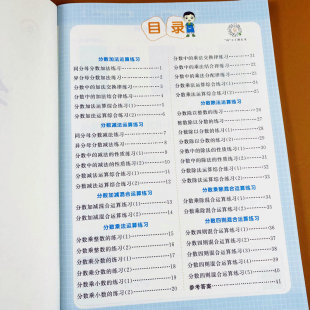 目录
分数加法运算练习
同分母分数加法练习 1
异分母分数加法练习 2
分数中的加法交换律练习 3
分数中的加法结合律练习 4
分数加法运算综合练习(1) 5
分数加法运算综合练习(2) 6
分数减法运算练习
同分母分数减法练习 7
异分母分数减法练习 8
分数中的减法的性质练习(1) 9
分数中的减法的性质练习(2) 10
分数减法运算综合练习(1) 11
分数减法运算综合练习(2) 12
分数加减混合运算练习
分数加减混合运算练习(1) 13
分数加减混合运算练习(2) 14
分数乘法运算练习
分数乘整数的练习(1) 15
分数乘整数的练习(2) 16
分数乘分数的练习(1) 17
分数乘分数的练习(2) 18
分数乘小数的练习(1) 19
分数乘小数的练习(2) 20
分数中的乘法交换律练习 21
分数中的乘法结合律练习 22
分数中的乘法分配律练习
分数乘法运算综合练习(1)
分数乘法运算综合练习(2)
分数除法运算练习
分数除以整数的练习
整数除以分数的练习
分数除以分数的练习(1)
分数除以分数的练习(2)
分数中的除法的性质练习(1)
分数中的除法的性质练习(2)
分数除法运算综合练习(1)
分数除法运算综合练习(2)
分数乘除混合运算练习
分数乘除混合运算练习(1)
分数乘除混合运算练习(2)
分数四则混合运算练习
分数四则混合运算练习(1) 36
分数四则混合运算练习(2) 37
分数四则混合运算练习(3) 38
分数四则混合运算练习(4) 39
分数四则混合运算练习(5) 40
参考答案 41